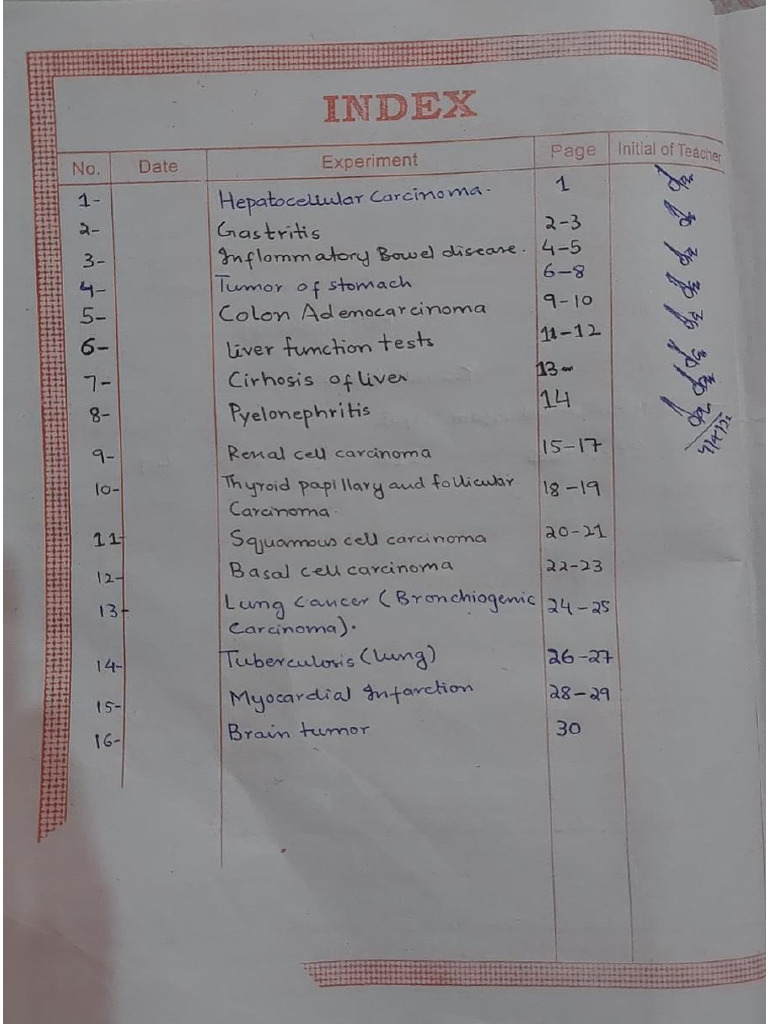 INDEX
No. Date Experiment Page Initial of Teacher
1- Hepatocellular Carcinoma. 1
2- Gastritis 2-3
3- Inflammatory Bowel disease. 4-5
4- Tumor of stomach 6-8
5- Colon Adenocarcinoma 9-10
6- liver function tests 11-12
7- Cirhosis of liver 13-
8- Pyelonephritis 14
9- Renal cell carcinoma 15-17
10- Thyroid papillary and follicular 18-19
Carcinoma.
11- Squamous cell carcinoma 20-21
12- Basal cell carcinoma 22-23
13- Lung Cancer (Bronchiogenic 24-25
Carcinoma).
14- Tuberculosis (lung) 26-27
15- Myocardial Infarction 28-29
16- Brain tumor 30